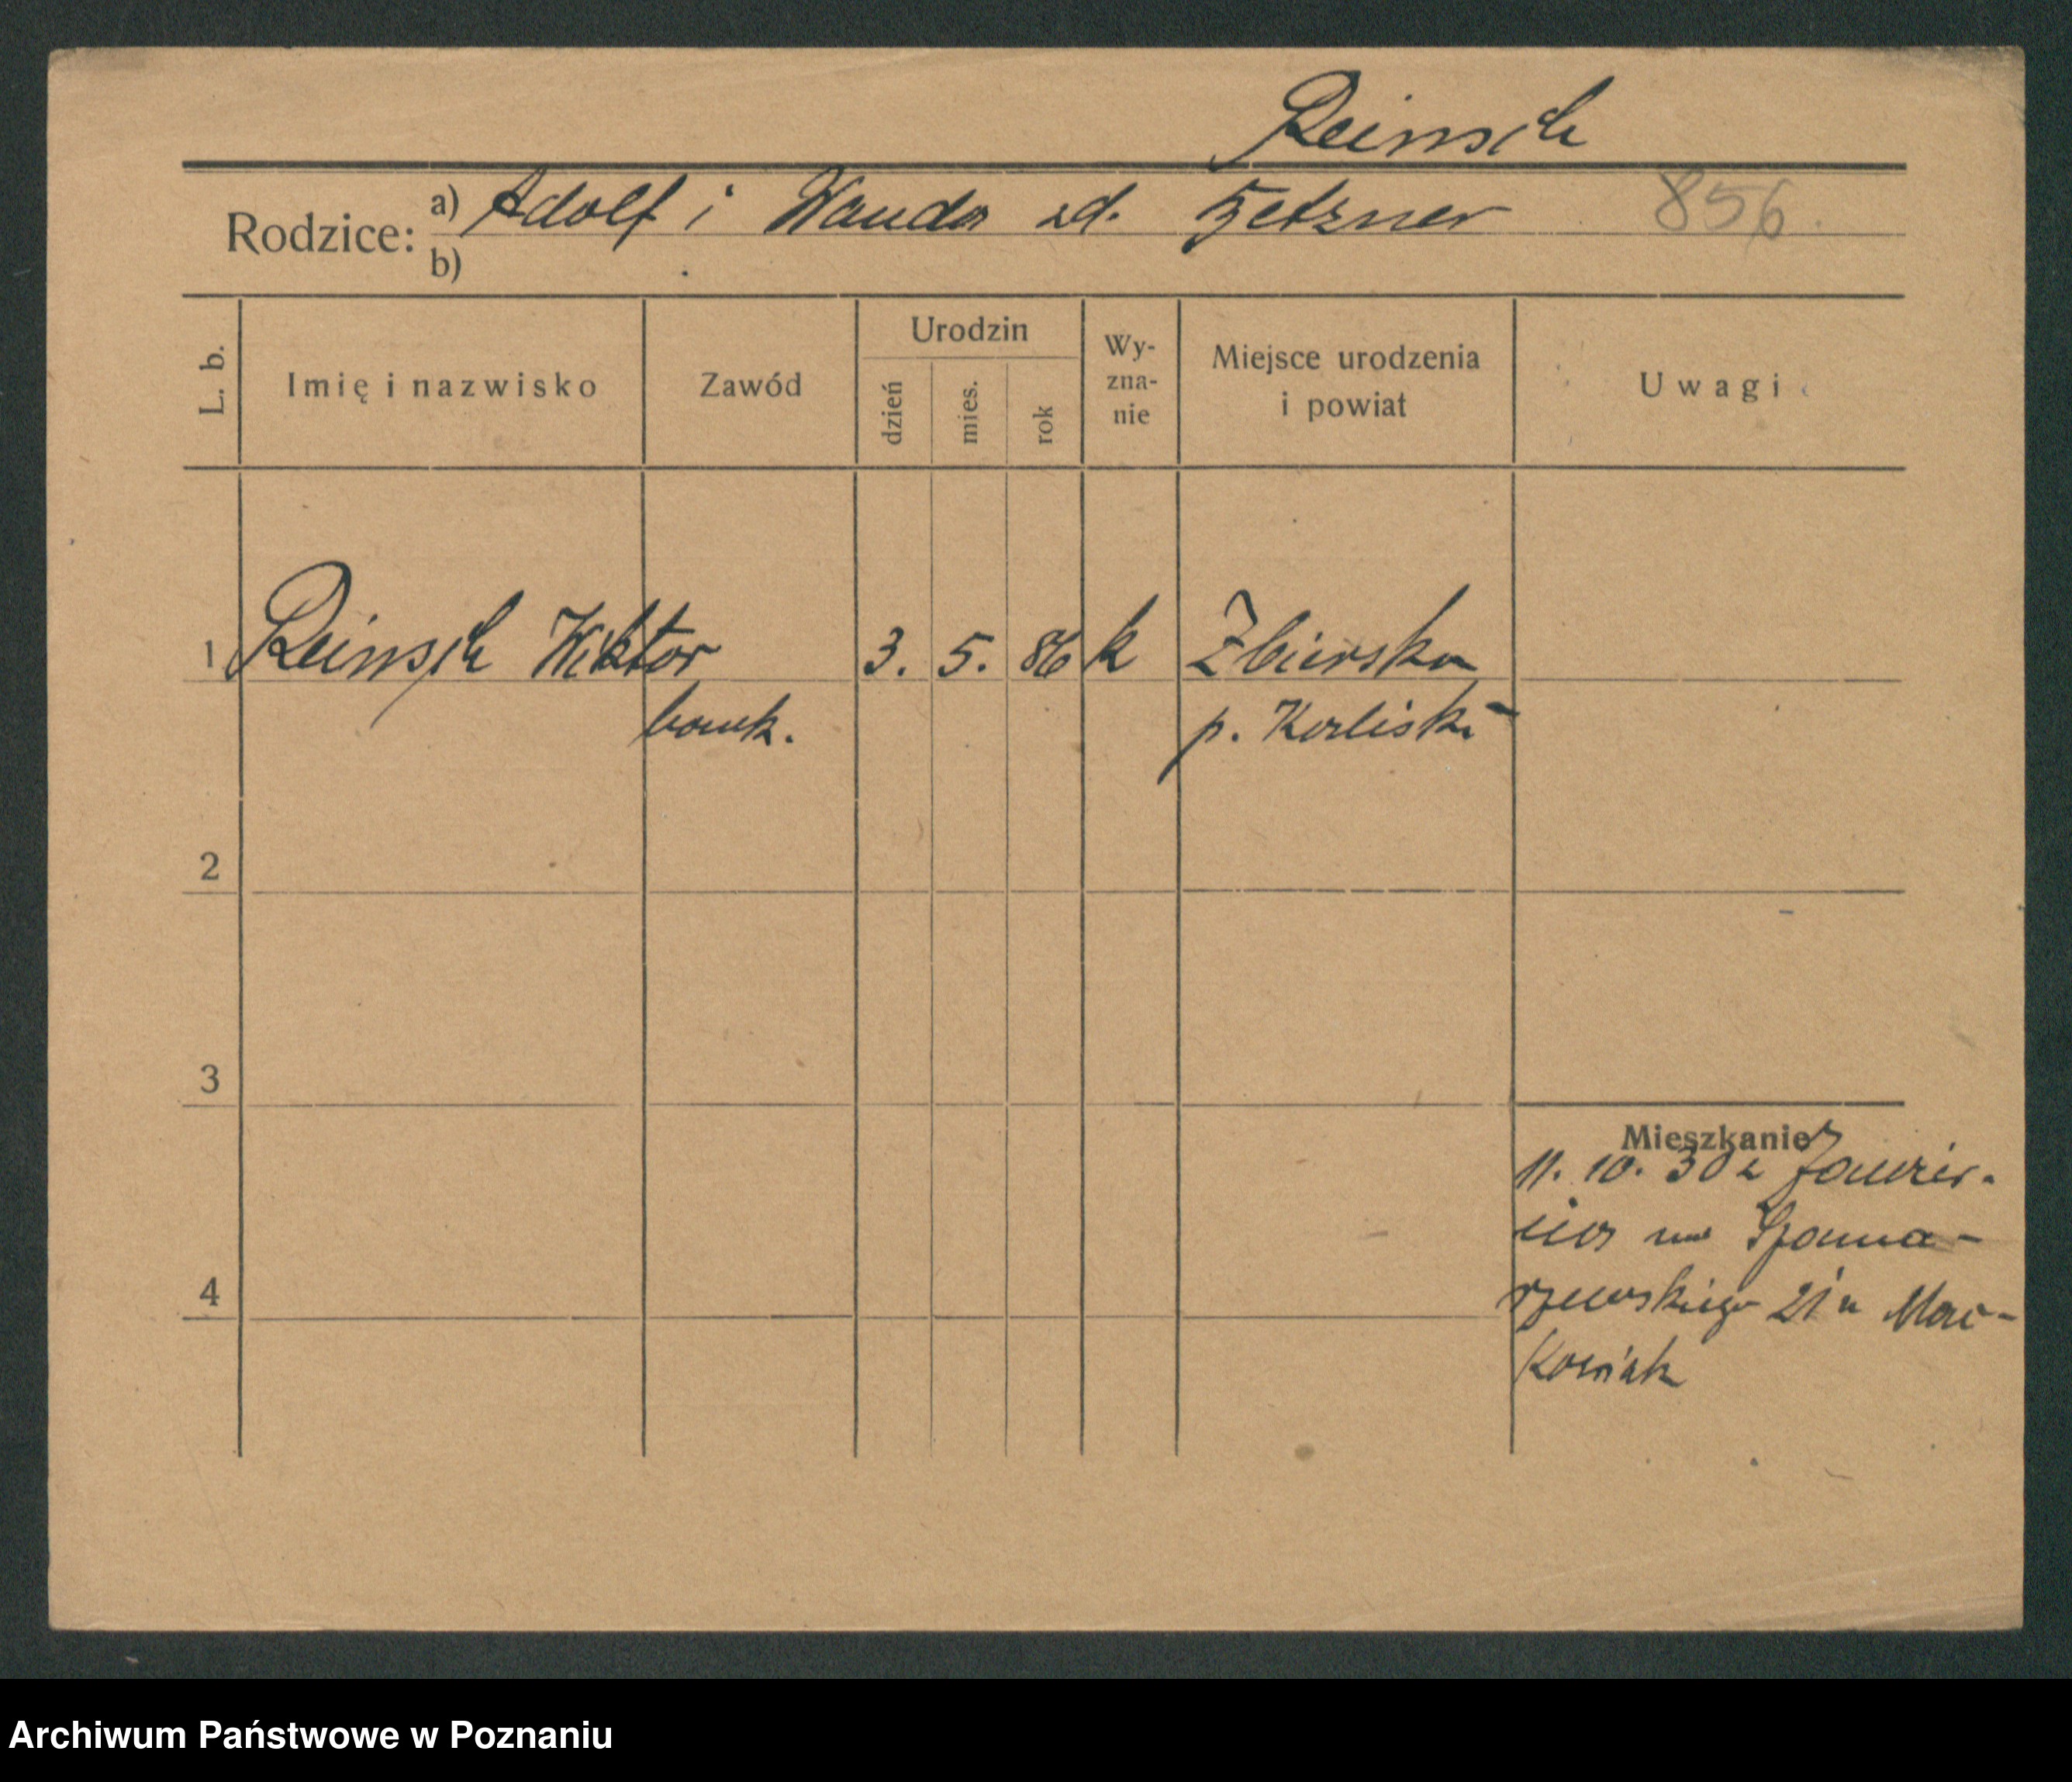 Reinsch
Rodzice: a) Adolf i Wanda zd. Fetzner 856
b)
L. b. Imię i nazwisko Zawód Urodzin dzień mies. rok Wy-zna-nie Miejsce urodzenia i powiat Uwagi
1 Reinsch Wiktor 3. 5. 86 k Zbiersko
bank. p. Kaliski
2
3
Mieszkanie
11. 10. 30 z
na Szama-
4
rzewskiego 21 u Mać-
kowiak
Archiwum Państwowe w Poznaniu